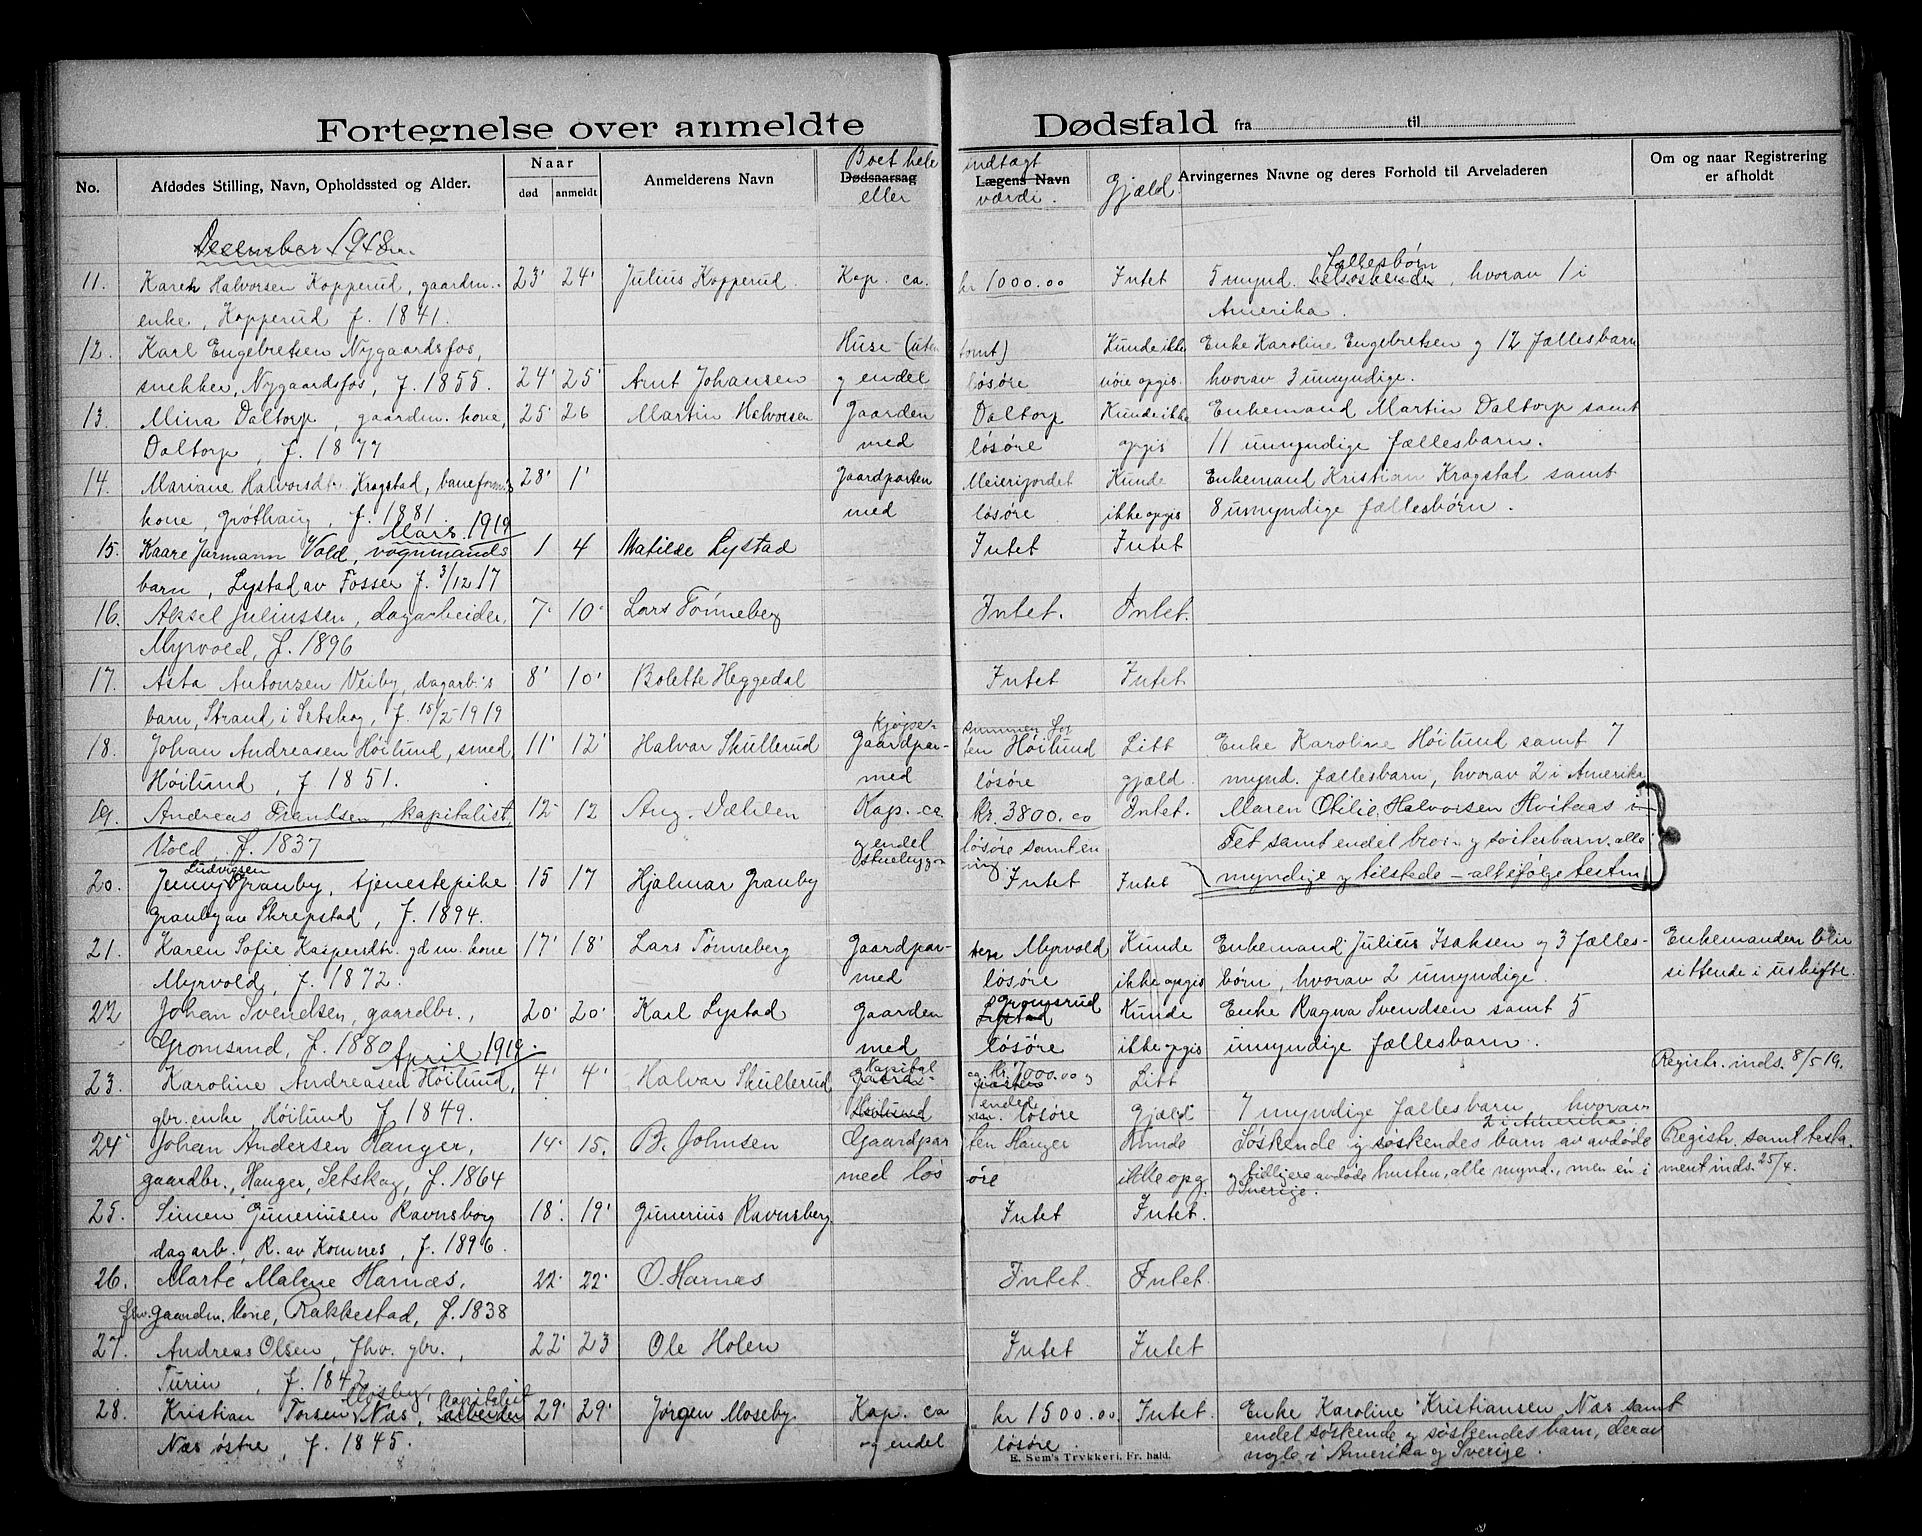 Fortegnelse over anmeldte Dødsfald fra til
No. Afdødes Stilling, Navn, Opholdssted og Alder. Naar død anmeldt Anmelderens Navn Dødsaarsag Lægens Navn Arvingernes Navne og deres Forhold til Arveladeren Om og naar Registrering er afholdt
Boet hele indtægt
eller værdi. Gjæld
December 1918
11. Karen Halvorsen Kopperud, gaardm. 23' 24' Julius Kopperud. Kap. ca. kr 1000.00 Intet 5 mynd. helsøskende fællesbørn, hvorav 1 i
enke, Kopperud f. 1841. Amerika.
12. Karl Engebretsen Nygaardsfos, Huse (uten tomt) Kunde ikke Enke Karoline Engebretsen og 12 fællesbarn
snekker, Nygaardsfos, f. 1855. 24' 25' Arnt Johansen og endel løsøre nøie opgis. hvorav 3 umyndige.
13. Mina Daltorp, gaardm. kone, 25' 26 Martin Halvorsen Gaarden Daltorp Kunde ikke Enkemand Martin Daltorp samt
Daltorp, f. 1877 med løsøre opgis 11 umyndige fællesbarn.
14. Mariane Halvorsdt. Kragstad, baneform. 28' 1' Gaardparten Meierijordet Kunde Enkemand Kristian Kragstad samt
kone, Grøthaug, f. 1881 med løsøre ikke opgis 8 umyndige fællesbørn.
Mars 1919
15. Kaare Jarmann Vold, vognmands 1 4 Matilde Lystad Intet Intet
barn, Lystad av Fosser f. 3/12 17
16. Aksel Juliussen, dagarbeider, 7' 10' Lars Tønneberg Intet. Intet.
Myrvold, f. 1896
17. Asta Antonsen Veiby, dagarb.'s 8' 10' Bolette Heggedal Intet Intet
barn, Strand i Setskog, f. 15/2 1919
Kjøpe- summen for
18. Johan Andreasen Høilund, smed, 11' 12' Halvar Skullerud Gaardpar- ten Høilund Litt Enke Karoline Høilund samt 7
Høilund, f 1851. med løsøre gjæld. mynd. fællesbarn, hvorav 2 i Amerika
19. Andreas Frandsen, kapitalist, 12' 12 Aug. Dæhlen Kap. ca kr. 3800.00 Intet. Maren Otilie Halvorsen Hvitaas i
Vold, f. 1837 og endel løsøre samt en Fet samt endel bror- og søsterbarn, alle
Ludvigsen
20. Jenny Granby, tjenestepike 15 17 Hjalmar Granby Intet Intet myndige og tilstede – alt ifølge testm.
Granby av Skrepstad, f. 1894.
21. Karen Sofie Kaspersdtr. gdm. kone 17' 18' Lars Tønneberg Gaardpar- ten Myrvold Kunde Enkemand Julius Isaksen og 3 fælles- Enkemanden blir
Myrvold, f. 1872. med løsøre ikke opgis børn, hvorav 2 umyndige. sittende i uskifte.
22 Johan Svendsen, gaardbr., 20' 20' Karl Lystad Gaarden Lystad Gromsrud Kunde Enke Ragna Svendsen samt 5
Gromsrud, f. 1880 med løsøre ikke opgis umyndige fællesbarn.
April 1919.
23. Karoline Andreasen Høilund, 4' 4' Halvar Skullerud Kapital ca. kr. 1000.00 og Litt Registr. inds. 8/5 19.
gbr. enke, Høilund f 1849. Høilund endel løsøre Gjæld 7 myndige fællesbarn hvorav
2 i Amerika
24' Johan Andersen Hanger, 14' 15. B. Johnsen Gaardpar ten Hanger Kunde Søskende og søskendes barn av avdøde Registr. samt testa-
gaardbr., Hanger, Setskog, f. 1864 med løs øre ikke opg. og tidligere avdøde hustru, alle mynd., men én i ment inds. 25/4.
Sverige.
25. Simen Gunerius​en Ravnsborg 18'. 19' Gunerius Ravnsberg. Intet Intet.
dagarb., R. av Komnes, f. 1896.
26. Marte Malene Harnæs, 22' 22' O. Harnæs Intet. Intet.
fhv. gaardm. kone, Rakkestad, f. 1838
27. Andreas Olsen, fhv. gbr., 22' 23 Ole Holen Intet Intet
Turin, f. 1842
Mosby, kapitalist
28. Kristian Torsen Næs, arbeider 29' 29' Jørgen Moseby. Kap. ca kr 1500.00. Intet. Enke Karoline Kristiansen Næs samt
Næs østre, f. 1845. og endel løsøre. endel søskende og søskendes barn, derav
nogle i Amerika og Sverige.
E. Sem's Trykkeri, Fr. hald.